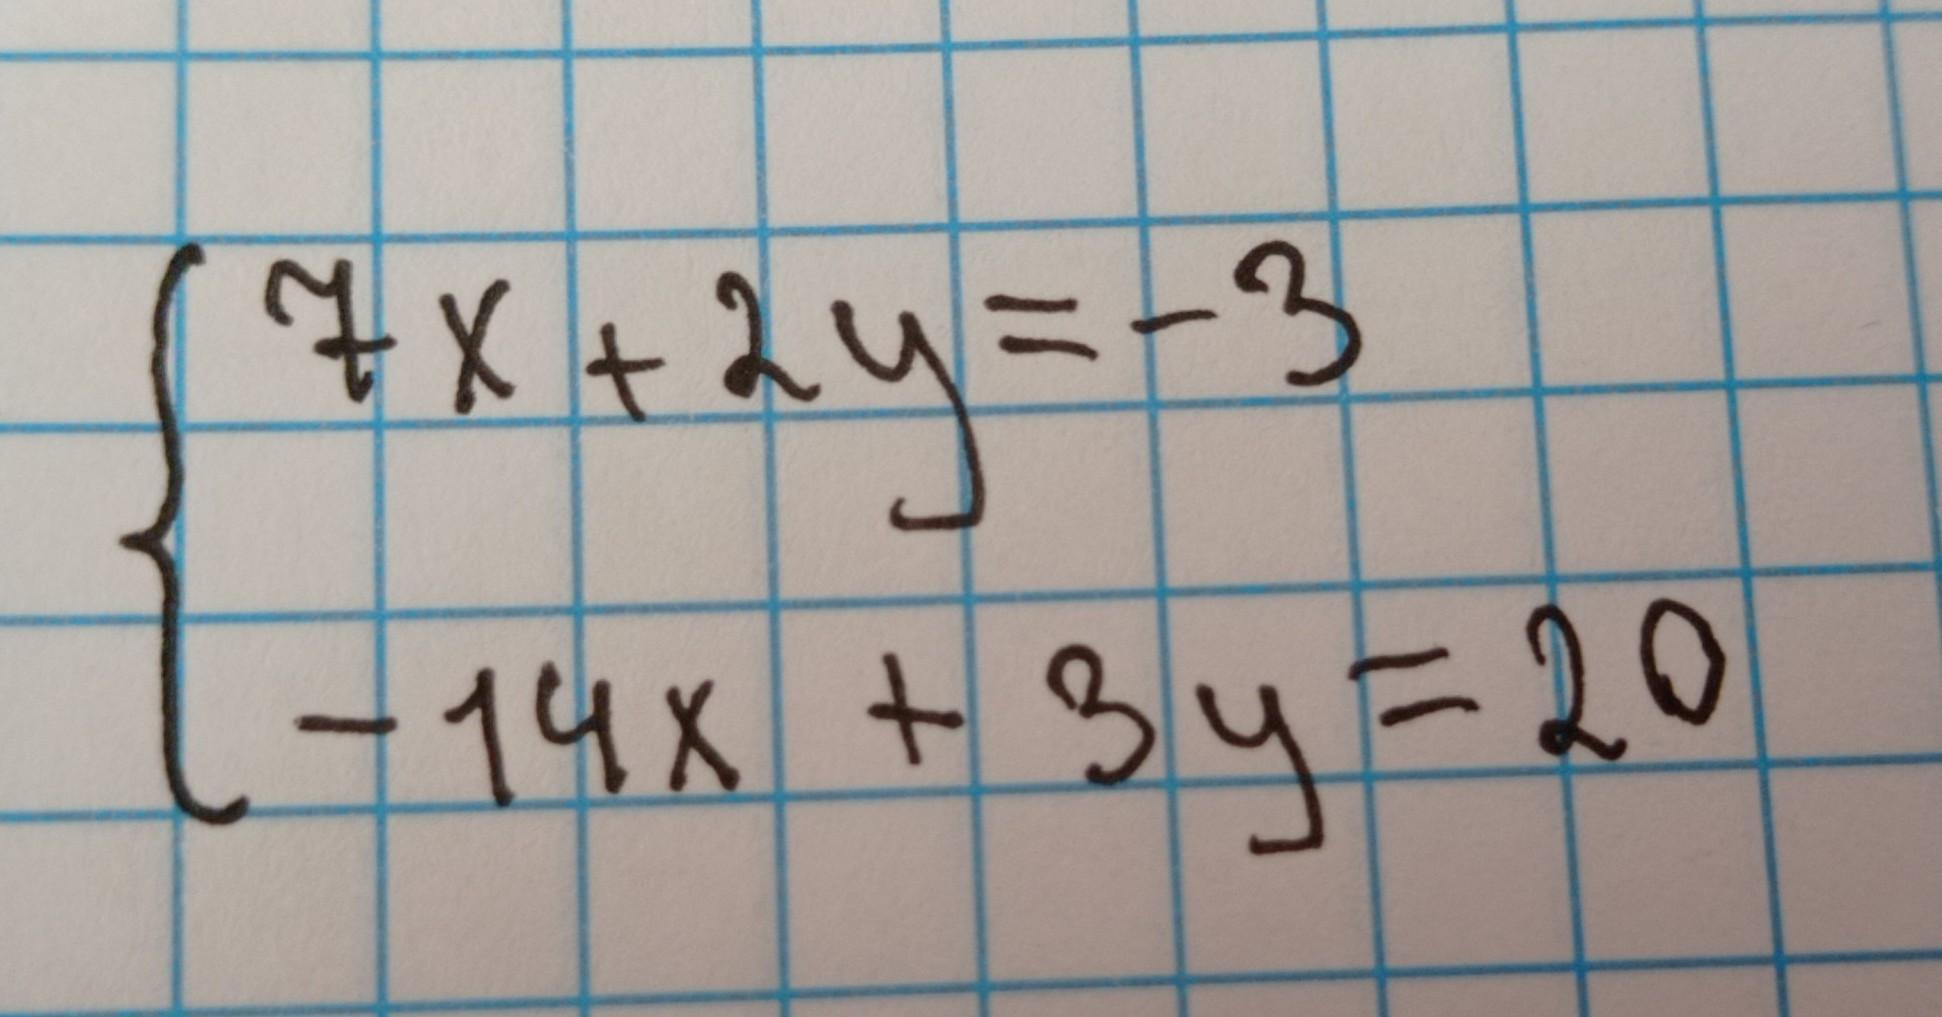 7x + 2y = -3
-14x + 3y = 20